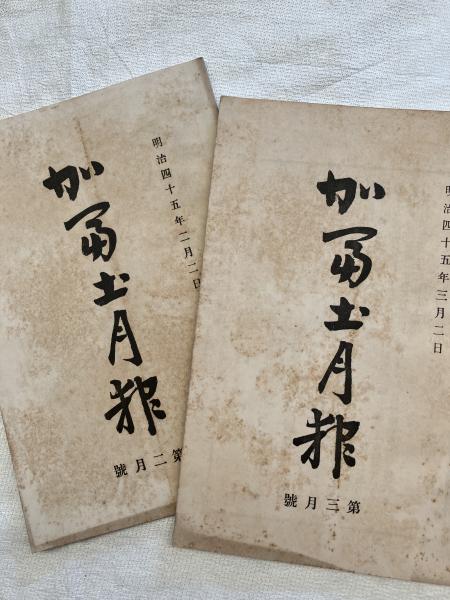 明治四十五年二月二日
加冨士月報
第二月號
明治四十五年三月二日
加冨士月報
第三月號